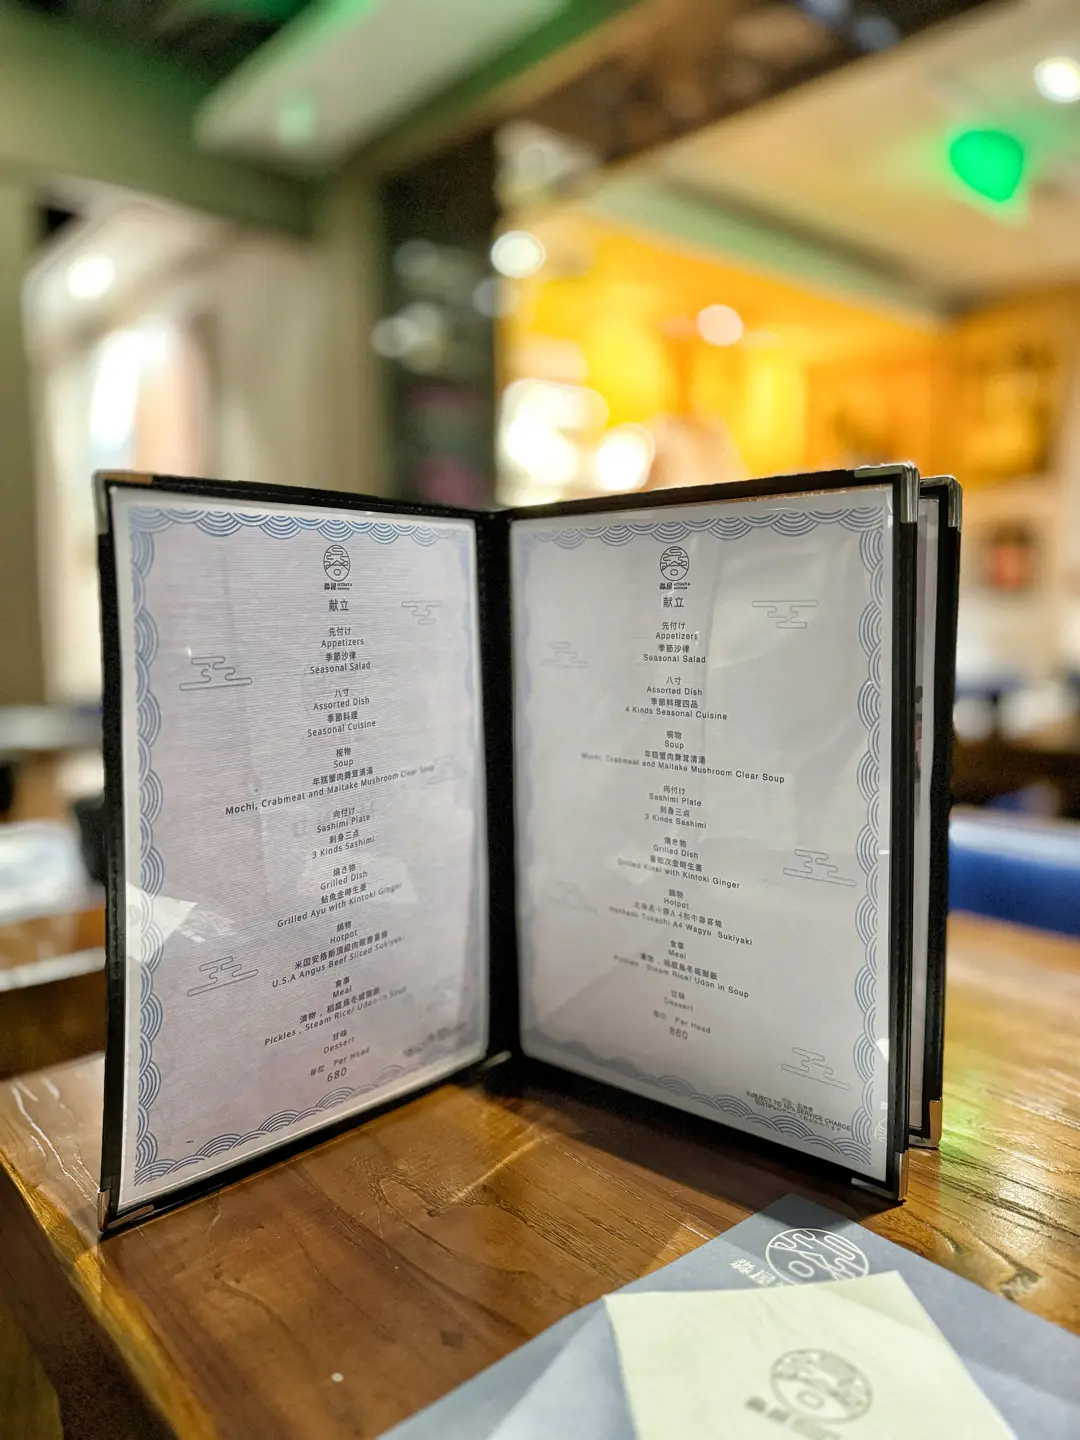 献立
先付け
Appetizers
季節沙律
Seasonal Salad
八寸
Assorted Dish
季節料理
Seasonal Cuisine
椀物
Soup
年糕蟹肉舞茸清湯
Mochi, Crabmeat and Maitake Mushroom Clear Soup
向付け
Sashimi Plate
刺身三点
3 Kinds Sashimi
燒き物
Grilled Dish
鮎魚金時生姜
Grilled Ayu with Kintoki Ginger
鍋物
Hotpot
米国安格斯頂級肉眼壽喜燒
U.S.A Angus Beef Sliced Sukiyaki
食事
Meal
漬物，稻庭烏冬或御飯
Pickles , Steam Rice/ Udon in Soup
甘味
Dessert
每位 Per Head
680
献立
先付け
Appetizers
季節沙律
Seasonal Salad
八寸
Assorted Dish
季節料理四品
4 Kinds Seasonal Cuisine
椀物
Soup
年糕蟹肉舞茸清湯
Mochi, Crabmeat and Maitake Mushroom Clear Soup
向付け
Sashimi Plate
刺身三点
3 Kinds Sashimi
燒き物
Grilled Dish
喜知次金時生姜
Grilled Kinki with Kintoki Ginger
鍋物
Hotpot
北海道十勝A4和牛壽喜燒
Hokkaido Tokachi A4 Wagyu Sukiyaki
食事
Meal
漬物，稻庭烏冬或御飯
Pickles , Steam Rice/ Udon in Soup
甘味
Dessert
每位 Per Head
880
SUBJECT TO 10% SERVICE CHARGE